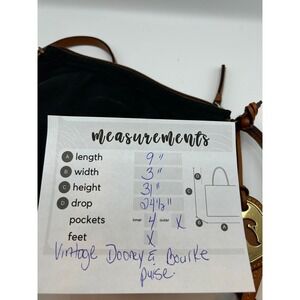 measurements
A length 9"
B width 3"
C height 31"
D drop 24½"
pockets inner 4 outer X
feet X
Vintage Dooney & Bourke
purse.
A
B
C
D